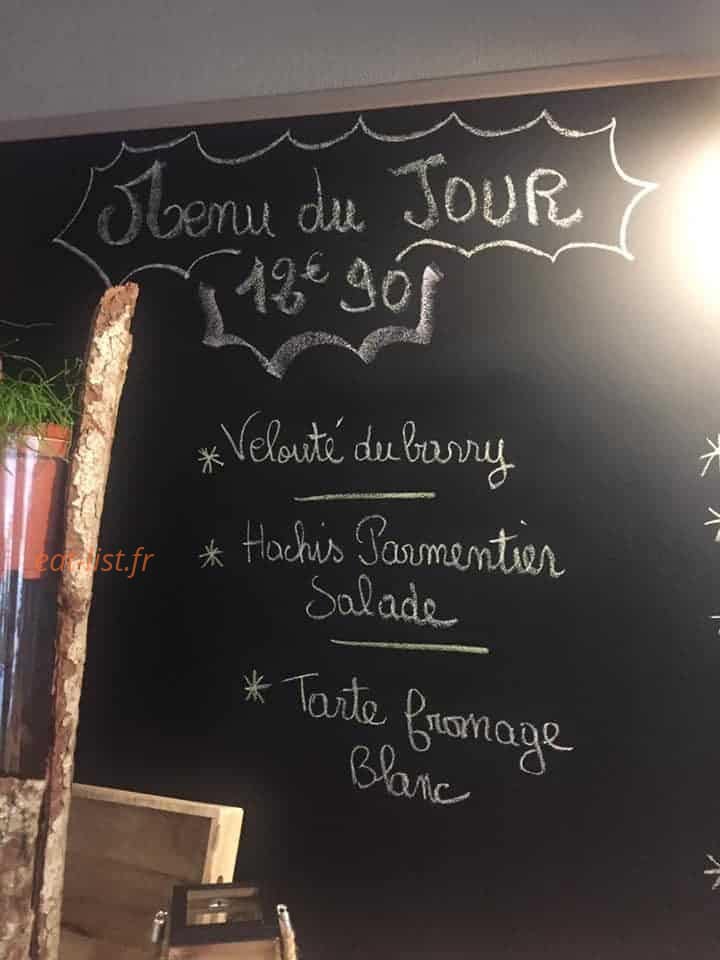 Menu du JOUR
18€90
* Velouté dubarry
* Hachis Parmentier
Salade
* Tarte fromage
Blanc